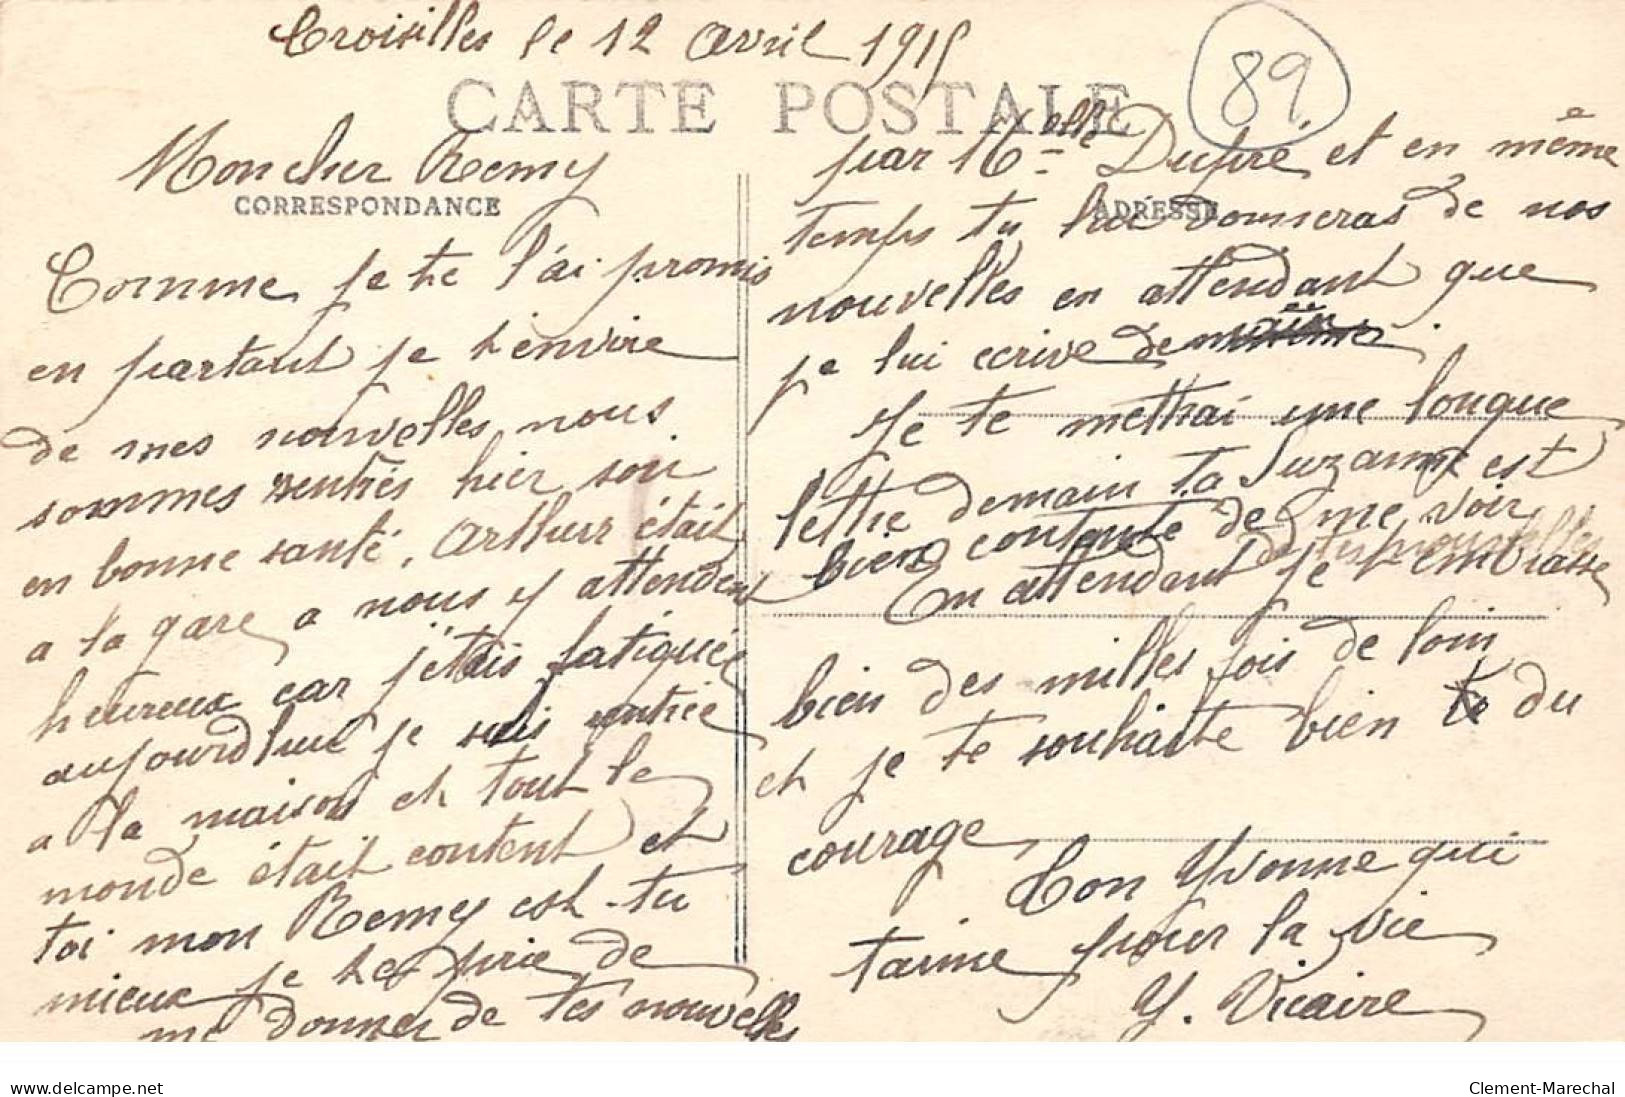 Croisilles le 12 avril 1915
89
CARTE POSTALE
Mon cher Remy
CORRESPONDANCE
Comme je te l'ai promis
en partant je t'envoie
de mes nouvelles nous
sommes rentrés hier soir
en bonne santé, Arthur était
a la gare a nous y attendent
heureux car j'étais fatiguée
aujourd'hui je suis rentrée
a la maison et tout le
monde était content et
toi mon Remy est-tu
mieux je te prie de
me donner de tes nouvelles
par Melle Dupré et en même
ADRESSE
temps tu lui donneras de nos
nouvelles en attendant que
je lui ecrive de
Je te mettrai une longue
lettre demain ta Suzanne est
bien contente de me voir
de tes nouvelles
En attendant je t'embrasse
bien des milles fois de loin
et je te souhaite bien du
courage
Ton Yvonne qui
taime pour la vie
Y. Vicaire
www.delcampe.net
Clement-Marechal